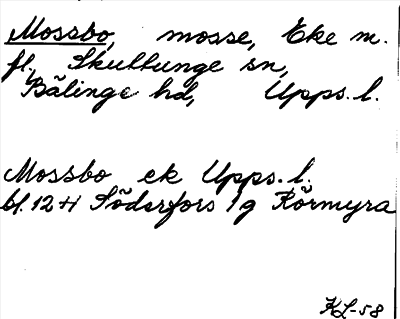 Mossbo, mosse, Eke m.
fl., Skuttunge sn,
Bälinge hd, Upps. l.
Mossbo ek Upps. l.
bl. 12 H Söderfors 1g Rörmyra
KL-58